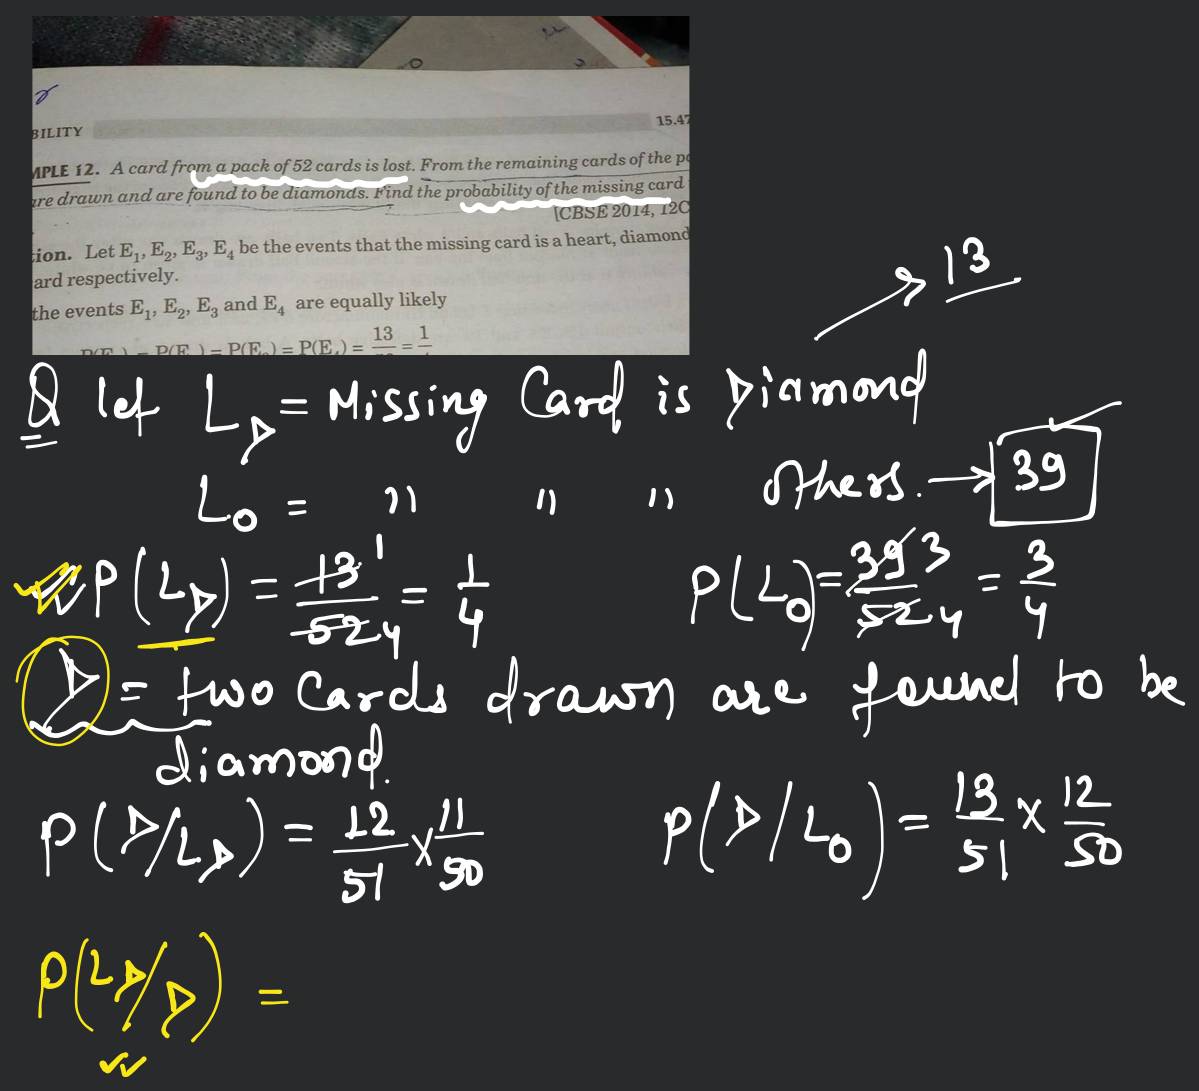 BILITY 15.47
MPLE 12. A card from a pack of 52 cards is lost. From the remaining cards of the
are drawn and are found to be diamonds. Find the probability of the missing card
[CBSE 2014, 12C
tion. Let E₁, E₂, E₃, E₄ be the events that the missing card is a heart, diamond
ard respectively.
the events E₁, E₂, E₃ and E₄ are equally likely
P(E₃) = P(E₄) = 13/52 = 1/4
13
Q let L_D = Missing Card is Diamond
L_O = " " " others. → 39
P(L_D) = 13/52 = 1/4 P(L_O) = 39/52 = 3/4
D = two Cards drawn are found to be
diamond.
P(D/L_D) = 12/51 × 11/50 P(D/L_O) = 13/51 × 12/50
P(L_D/D) =